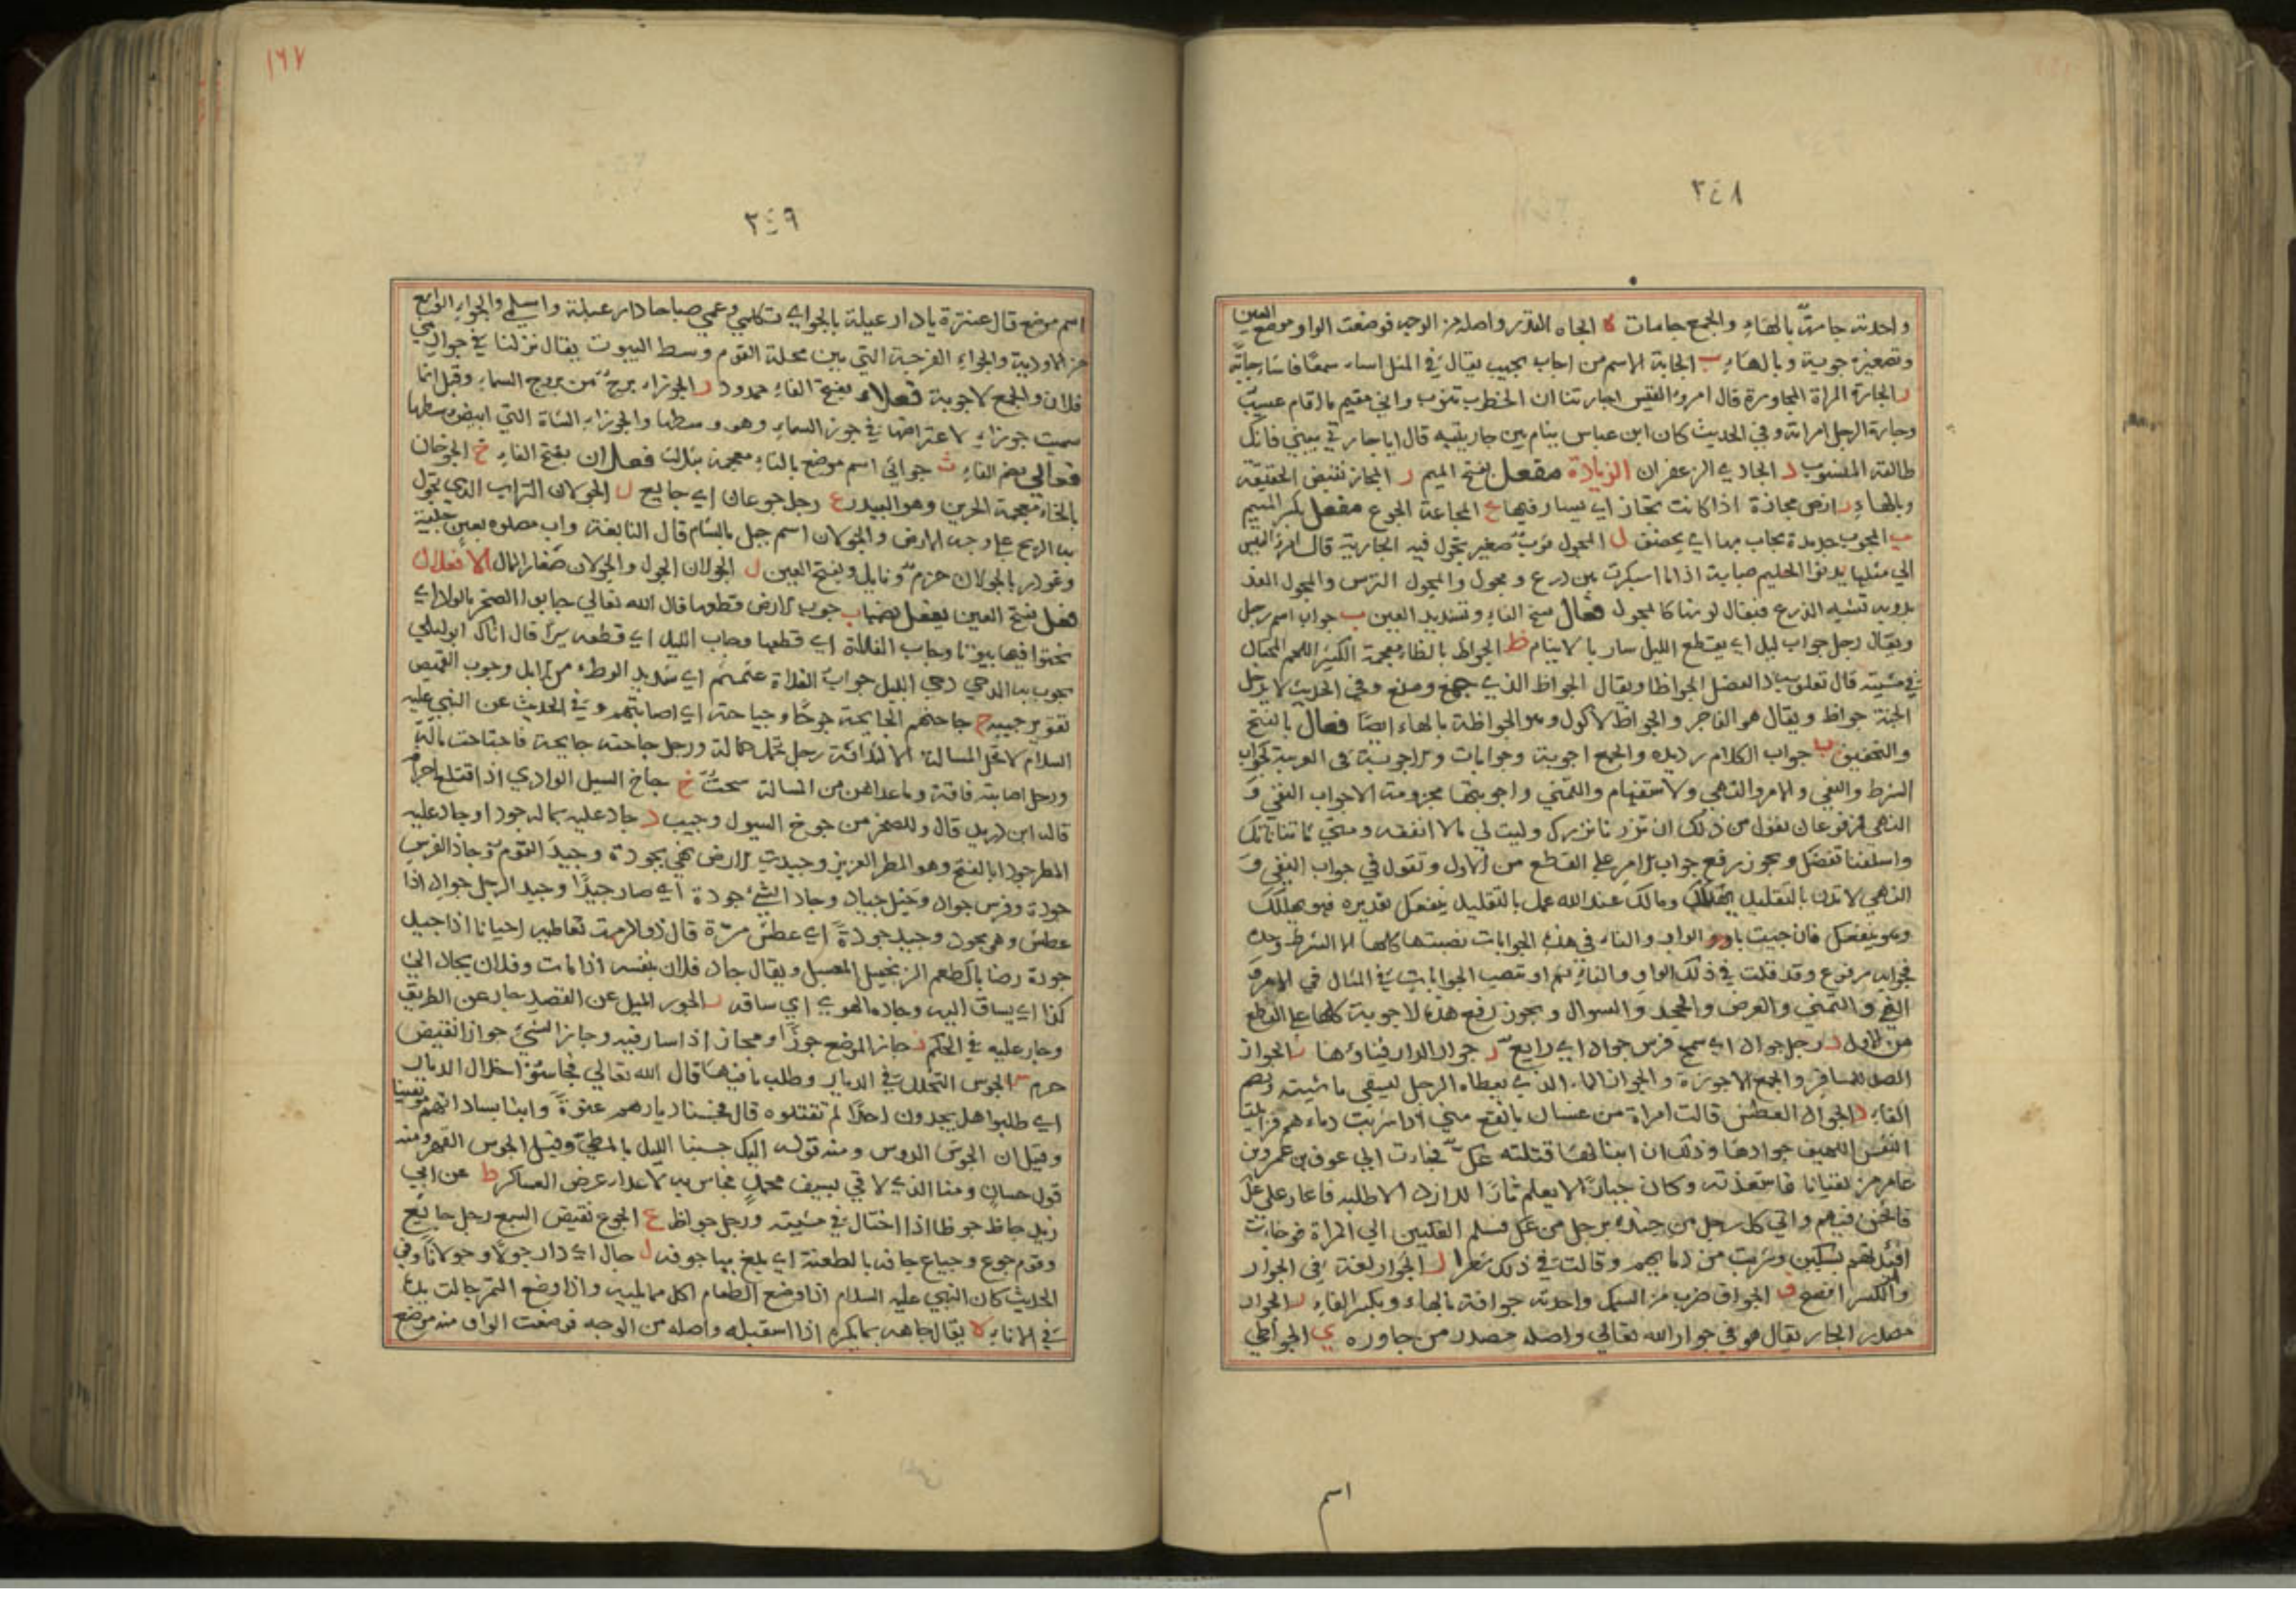 ٢٤٨
واحدته جامة بالهاء والجمع جامات ه الجاه القدر واصله من الوجه فوضعت الواو موضع العين
وتصغيره جويهة وبالهاء ب الجابة الاسم من اجاب يجيب يقال في المثل اساء سمعًا فاساء جابة
ر الجارة المراة المجاورة قال امرؤ القيس اجارتنا ان الخطوب تنوب واني مقيم ما اقام عسيب
وجارة الرجل امراته وفي الحديث كان ابن عباس ينام بين جاريتيه قال ايا جارتي بيني فانك
طالقة المنسوب د الجادي الزعفران الزيادة مفعل بفتح الميم ز المجاز نقيض الحقيقة
وبالهاء ز ارض مجازة اذا كانت تجاز اي يسار فيها ع المجاعة الجوع مفعل بكسر الميم
ب المجوب حديدة يجاب بها اي يخصف ل المجول ثوب صغير تجول فيه الجارية قال امرؤ القيس
الي مثلها يرنو الحليم صبابة اذا ما اسبكرت بين درع ومجول والمجول الترس والمجول الغد
يروبه تشبه الدرع فيقال لونها كالمجول فعال بفتح الفاء وتشديد العين ب جواب اسم رجل
ويقال رجل جواب ليل اي يقطع الليل ساربا لا ينام ظ الجواظ بالظاء معجمة الكثير اللحم المختال
في مشيته قال تعلو به ذا العضل الجواظا ويقال الجواظ الذي جمع ومنع وفي الحديث لا يدخل
الجنة جواظ ويقال هو الفاجر والجواظ الاكول وهو الجواظة بالهاء ايضا فعال بالفتح
والتخفيف ب جواب الكلام رديده والجمع اجوبة وجوابات والاجوبة في العربية كجواب
الشرط والنفي والامر والنهي والاستفهام والتمني واجوبتها مجزومة الا جواب النفي و
النهي فمرفوعان تقول من ذلك ان تزرنا نزرك وليت لي مالا انفقه ومتي تاتنا ناتك
واسلفنا تفضل ويجوز رفع جواب الامر علي القطع من الاول وتقول في جواب النفي و
النهي لا تدن بالتقليل يهلكك ومالك عند الله عمل بالتقليل ينفعك تقديره فهو يهلكك
وهو ينفعك فان جيت بالواو والفاء في هذه الجوابات نصبتها كلها الا الشرط وحده
فجوابه مرفوع وقد قلت في ذلك الواو والفاء ثم او تنصب الجوابات في المثال في الامر و
النفي والتمني والعرض والجحد والسوال ويجوز رفع هذه الاجوبة كلها علي القطع
من الاول د رجل جواد اي سمح فرس جواد اي رايع ر جوار الدار فناؤها ز الجواز
الصك للمسافر والجمع الاجوزة والجواز الماء الذي يعطاه الرجل ليسقي ماشيته وبضم
الفاء د الجواد العطش قالت امراة من غسان بالفتح مني اذا شربت دماءهم فزايلت
النفس اللهيف جوادها وذلك ان ابنا لها قتلته عك فجارت الي عوف بن عمرو بن
عامر مزيقيانا فاستعذته وكان جبارًا لا يعلم ثارًا للازد الا طلبه فاغار علي عك
فاثخن فيهم واتي كل رجل من جنده برجل من عك فسلم الفكيين الي المراة فوجاءت
افئدتهم بسكين وشربت من دمايهم وقالت في ذلك شعرا ر الجوار لغة في الجوار
والكسر افصح ف الجواف ضرب من السمك واحدته جوافة بالهاء وبكسر الفاء ر الجوار
مصدر الجار يقال هو في جوار الله تعالي واصله مصدر من جاوره ي الجواطي
اسم
١٦٧
٢٤٩
اسم موضع قال عنترة يا دار عبلة بالجواي تكلمي وعمي صباحا دار عبلة واسلمي والجواء الواسع
من الاودية والجواء الفرجة التي بين محلة القوم وسط البيوت يقال نزلنا في جواء بني
فلان والجمع الاجوبة فعلاء بفتح الفاء ممدود ز الجوزاء برج من بروج السماء وقيل انما
سميت جوزاء لاعتراضها في جوز السماء وهو وسطها والجوزاء الشاة التي ابيض وسطها
فعالي بضم الفاء ث جواثي اسم موضع بالثاء معجمة بثلاث فعلان بفتح الفاء خ الجوخان
بالخاء معجمة الجرين وهو البيدر ع رجل جوعان اي جايع ل الجولان التراب الذي تجول
به الريح علي وجه الارض والجولان اسم جبل بالشام قال النابغة واب مصلوه بعين جلية
وغودر بالجولان حزم ونايل وبفتح العين ل الجولان الجول والجولان صغار المال الافعال
فعل بفتح العين يفعل بضمها ب جوب الارض قطعها قال الله تعالي جابوا الصخر بالواد اي
نحتوا فيها بيوتا وجاب الفلاة اي قطعها وجاب الليل اي قطعه سيرًا قال اتاك ابو ليلي
يجوب به الدجي دجي الليل جواب الفلاة عثمثم اي شديد الوطء من الابل وجوب القميص
تقوير جيبه ح جاحتهم الجايحة جوحًا وجياحة اي اصابتهم وفي الحديث عن النبي عليه
السلام لا تحل المسالة الا لثلاثة رجل تحمل حمالة ورجل جاحته جايحة فاجتاحت ماله
ورجل اصابته فاقة وما عداهن من المسالة سحت خ جاخ السيل الوادي اذا اقتلع اجرافه
قاله ابن دريد قال وللصخر من جوخ السيول وجيب د جاد عليه بماله جودا وجاد عليه
المطر جودا بالفتح وهو المطر الغزير وجيدت الارض فهي مجودة وجيد القوم وجاد الفرس
جودة وفرس جواد وخيل جياد وجاد الشيء جودة اي صار جيدًا وجيد الرجل جوادا اذا
عطش وهو مجود وجيد جودة اي عطش مرة قال ذو الرمة تعاطيه احيانا اذا جيد
جودة رضابا كطعم الزنجبيل المعسل ويقال جاد فلان بنفسه اذا مات وفلان يجاد الي
كذا اي يساق اليه وجاده الهوي اي ساقه ر الجور الميل عن القصد جار عن الطريق
وجار عليه في الحكم ز جاز الموضع جوزًا ومجاز اذا سار فيه وجاز الشيء جوازا نقيض
حرم س الجوس التخلل في الديار وطلب ما فيها قال الله تعالي فجاسوا خلال الديار
اي طلبوا هل يجدون احدًا لم تقتلوه قال فجسنا ديارهم عنوة وابنا بساداتهم موثقينا
وقيل ان الجوس الدوس ومنه قوله اليك جسنا الليل بالمطي وقيل الجوس القهر ومنه
قول حسان ومنا الذي لاقي بسيف محمد فجاس به الاعداء عرض العساكر ظ عن ابي
زيد جاظ جوظا اذا اختال في مشيته ورجل جواظ ع الجوع نقيض الشبع رجل جايع
وقوم جوع وجياع جافه بالطعنة اي بلغ بها جوفه ل جال اي دار جولًا وجولانًا وفي
الحديث كان النبي عليه السلام اذا وضع الطعام اكل مما يليه واذا وضع التمر جالت يده
في الاناء ه يقال جاهه بما يكره اذا استقبله واصله من الوجه فوضعت الواو منه موضع